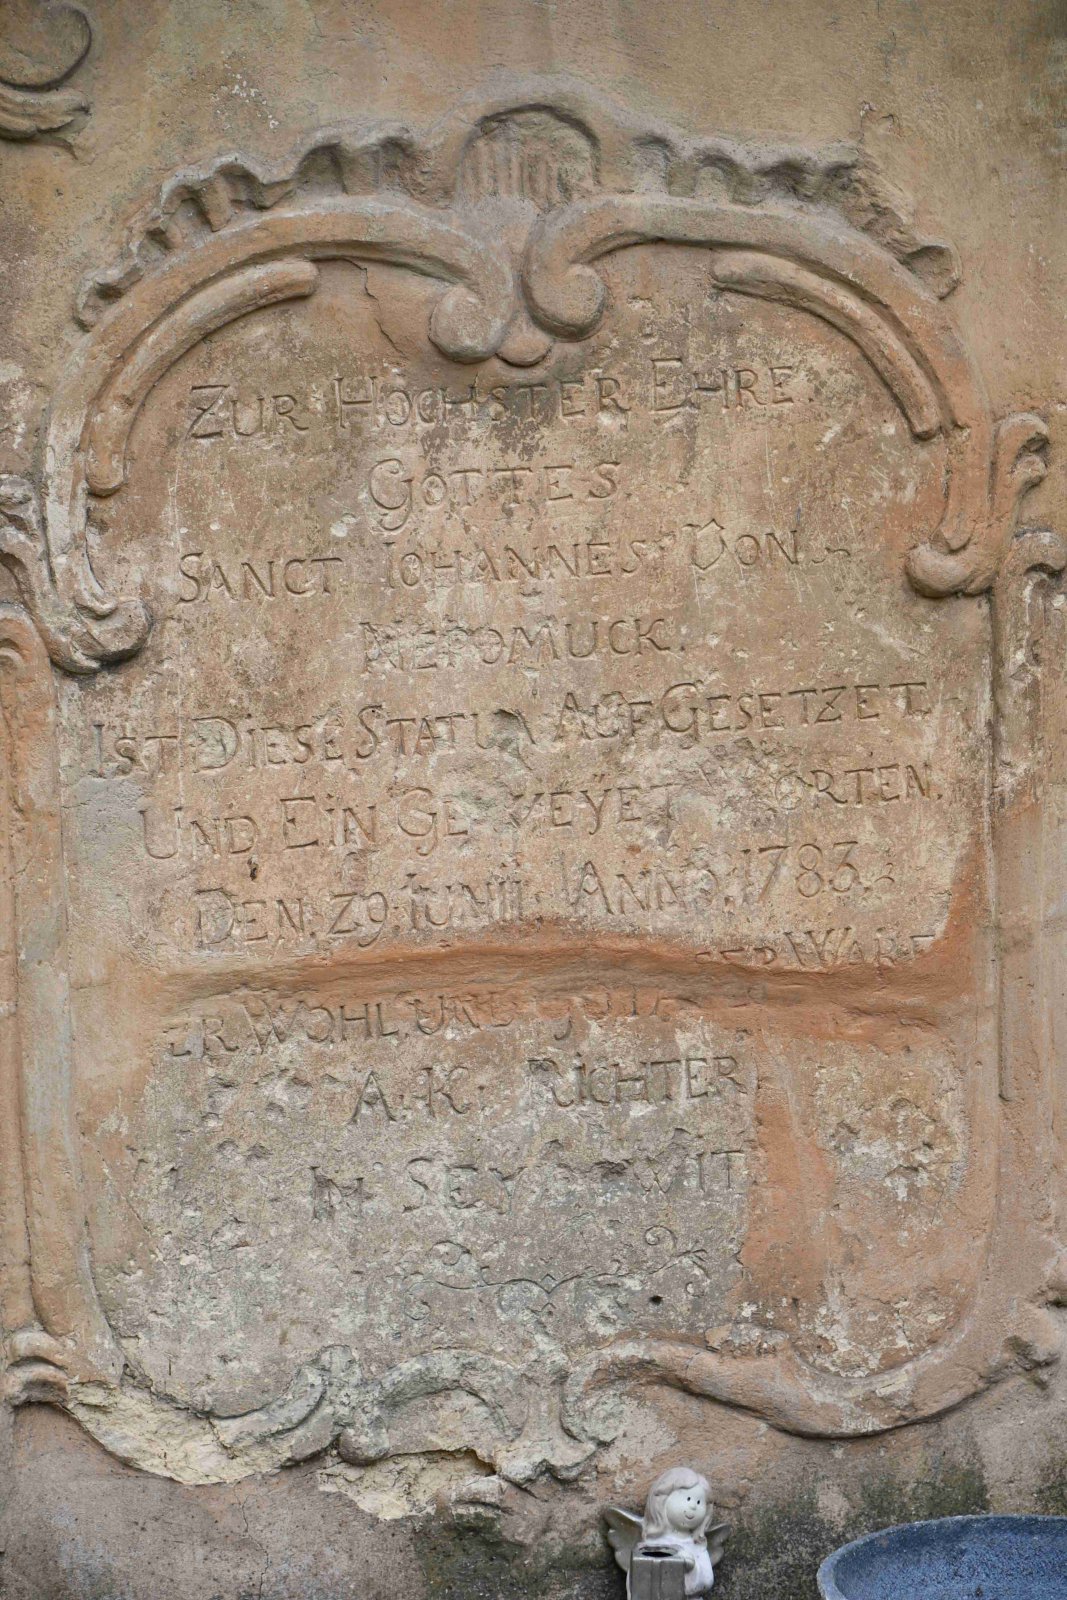 ZUR HÖCHSTER EHRE
GOTTES
SANCT IOHANNES VON
NEPOMUCK.
IST DIESE STATUA AUFGESETZET
UND EIN WORTEN.
DEN. 29. IUNII. ANNO. 1783.
WARE
WOHL
A. K. RICHTER
IN